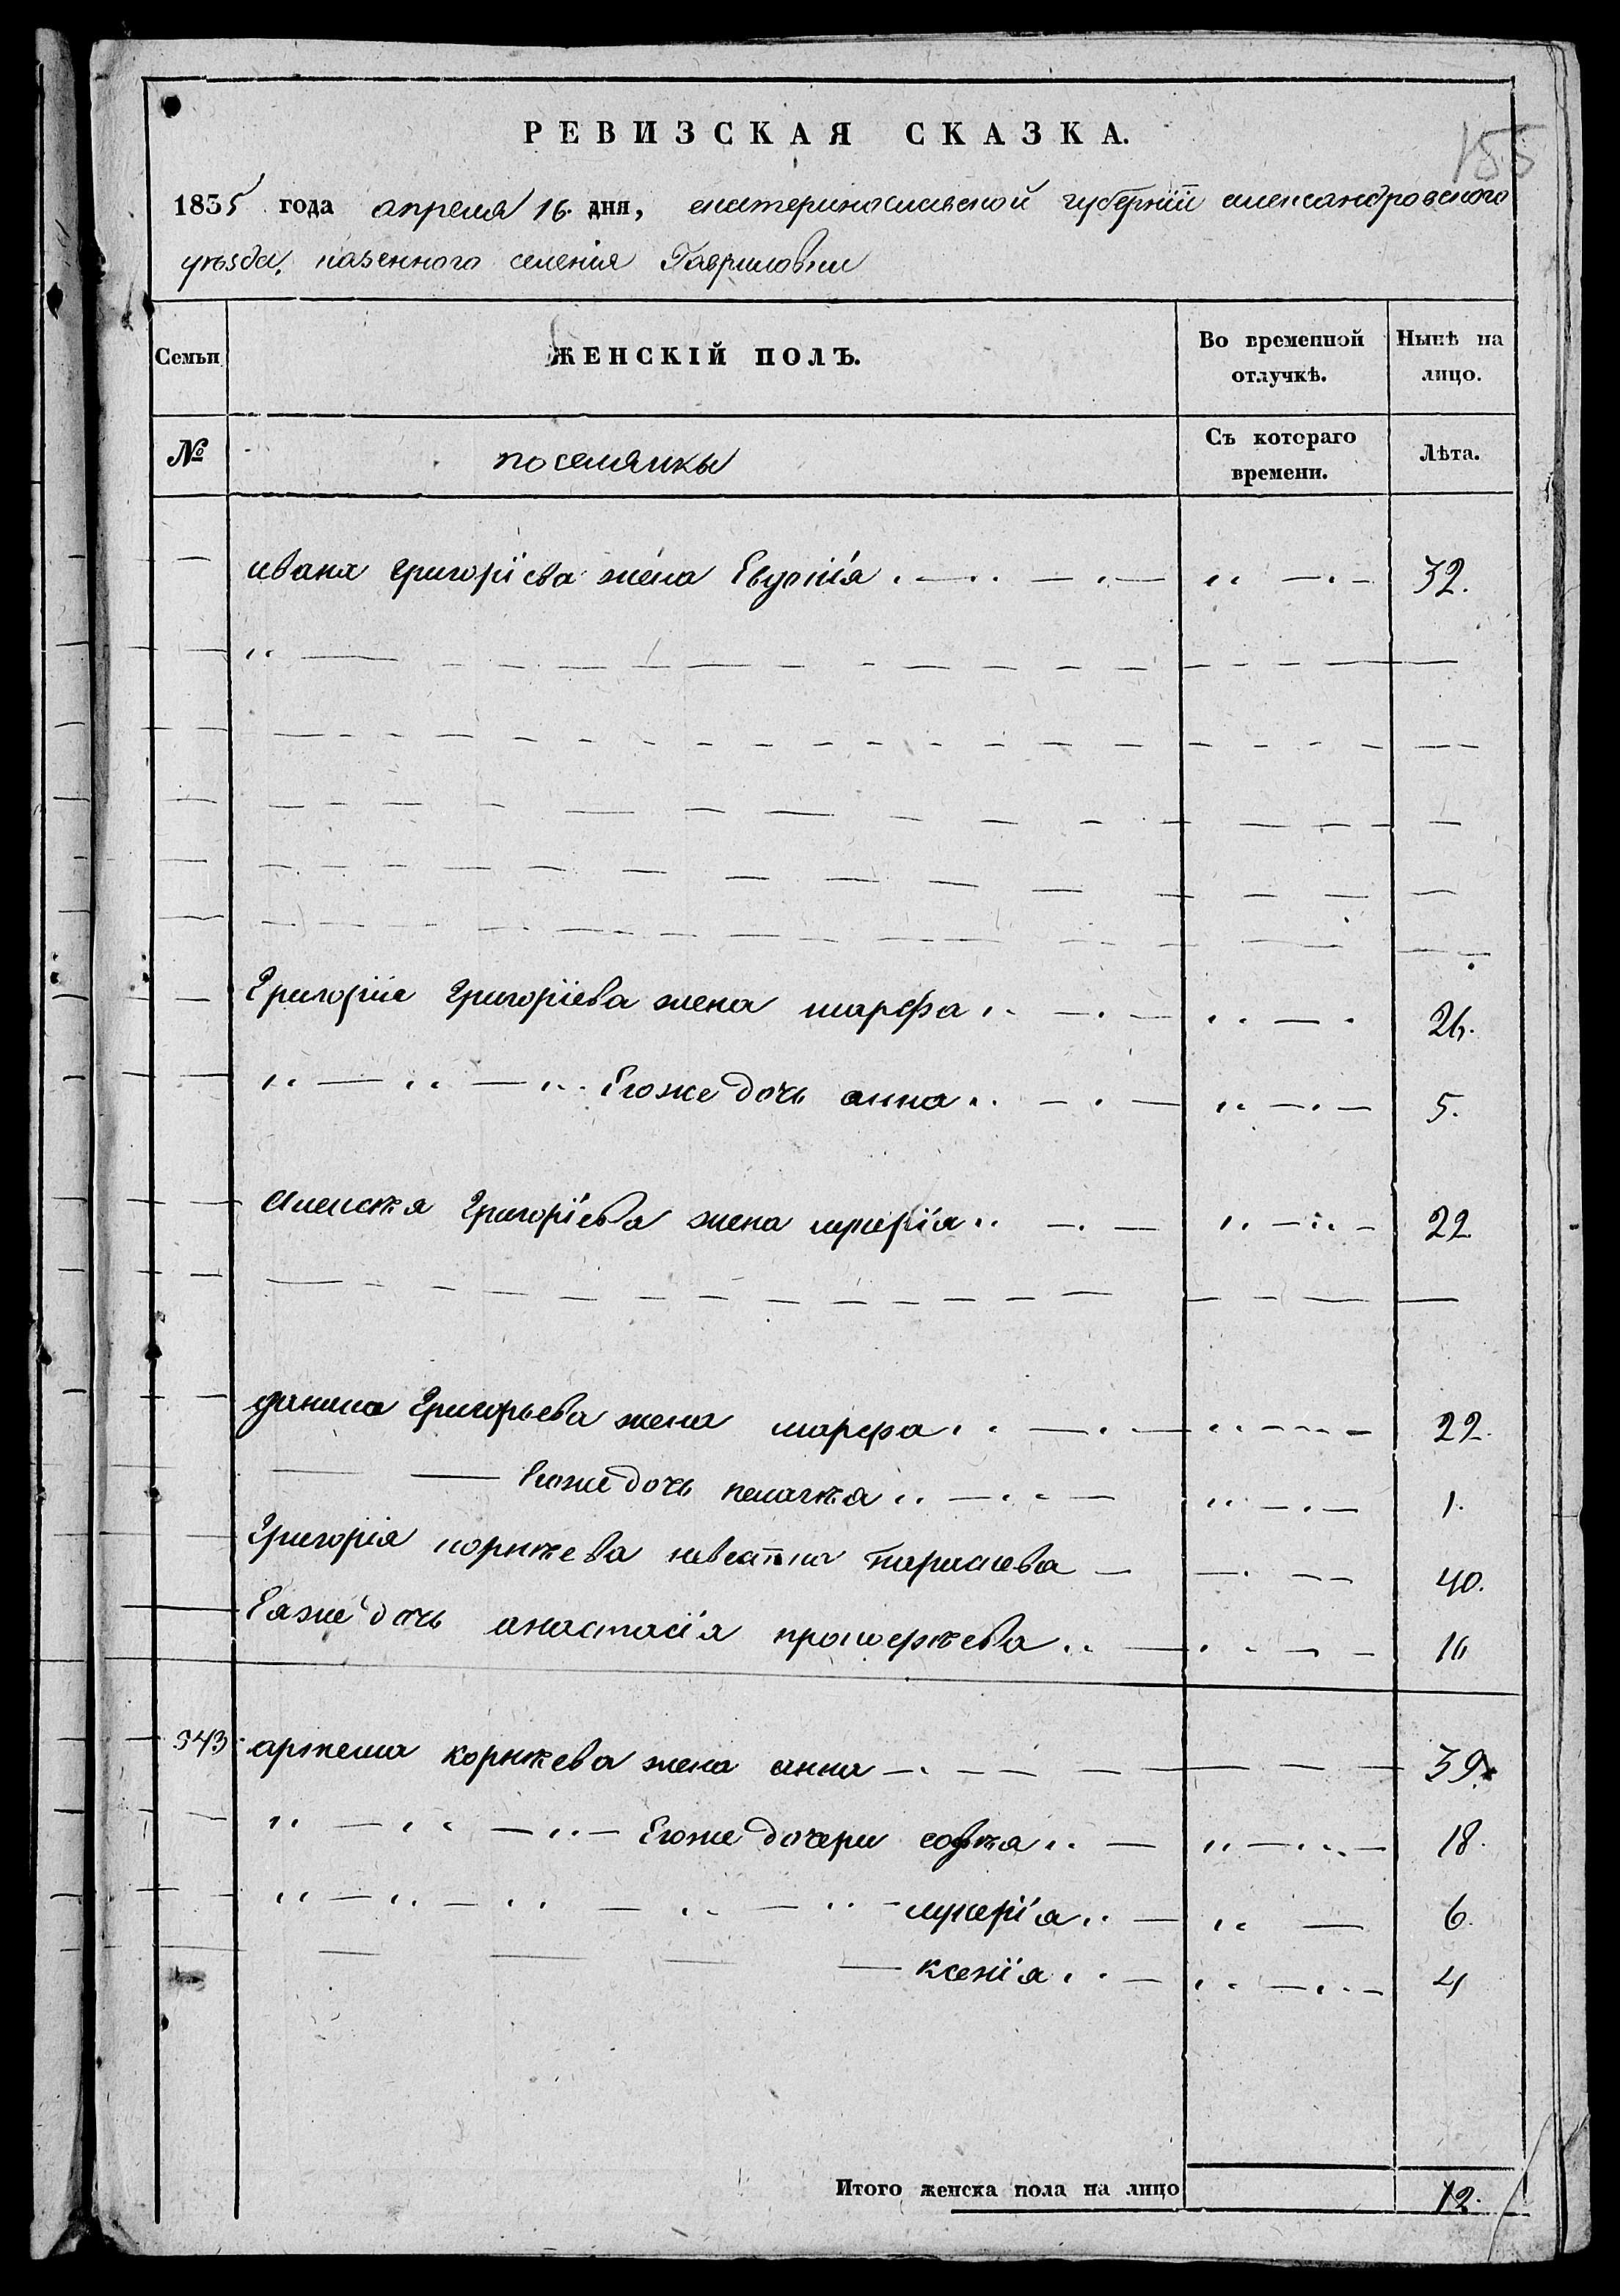 155
РЕВИЗСКАЯ СКАЗКА.
1835 года апреля 16. дня, екатеринославской губернїи александровского
уѣзда, казенного селенія Гавриловки
Семьи
ЖЕНСКІЙ ПОЛЪ.
Во временной отлучкѣ.
Нынѣ на лицо.
№
поселянки
Съ котораго времени.
Лѣта.
ивана григорїева жена Евдокія 32.
Григорїя Григорїева жена марфа 26.
Егоже дочь анна 5.
Алексѣя Григорїева жена лукерїя 22
данила Григорьева жена марфа 22.
Егоже дочь пелагѣя 1.
Григорія корнѣева невѣстка 40.
Еяже дочь анастасія прокофѣева 16
543 артема корнѣева жена анна 39.
Егоже дочери софѣя 18.
лукерїя 6.
ксенїя 4
Итого женска пола на лицо 12.